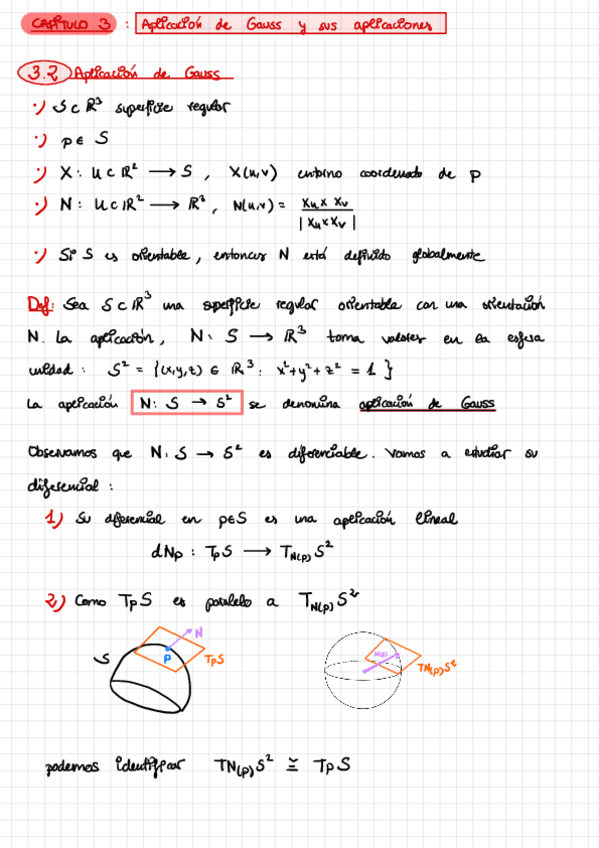 CAPÍTULO 3 : Aplicación de Gauss y sus aplicaciones
3.2 Aplicación de Gauss
·) S ⊂ ℝ³ superficie regular
·) p ∈ S
·) X : U ⊂ ℝ² → S , X(u,v) entorno coordenado de p
·) N : U ⊂ ℝ² → ℝ³ , N(u,v) = Xu × Xv / |Xu × Xv|
·) Si S es orientable, entonces N está definido globalmente
Def: Sea S ⊂ ℝ³ una superficie regular orientable con una orientación
N. La aplicación, N : S → ℝ³ toma valores en la esfera
unidad : S² = {(x,y,z) ∈ ℝ³ : x²+y²+z² = 1}
La aplicación N: S → S² se denomina aplicación de Gauss
Observamos que N: S → S² es diferenciable. Vamos a estudiar su
diferencial :
1) Su diferencial en p∈S es una aplicación lineal
dNp : TpS → T_N(p) S²
2) Como TpS es paralelo a T_N(p) S²
N
S
P
TpS
N(p)
T_N(p) S²
podemos identificar T_N(p) S² ≅ TpS